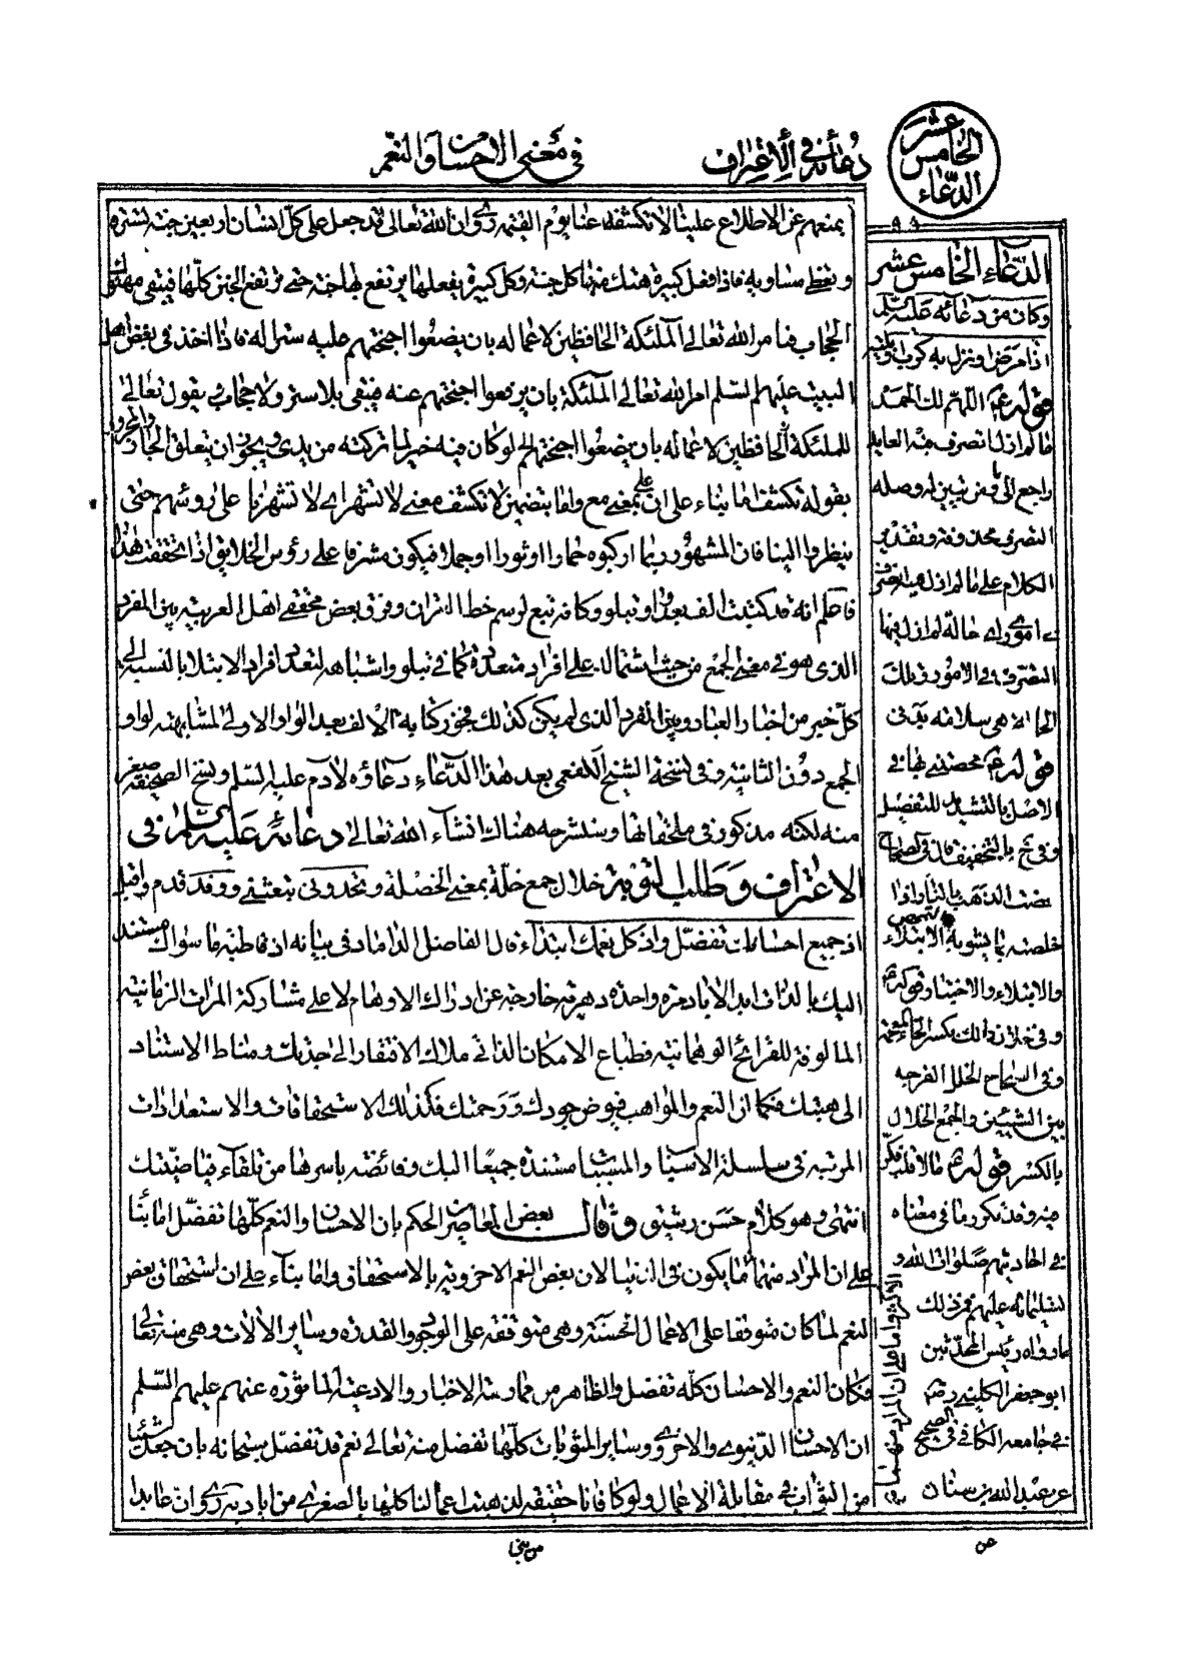 الدعاء الخامس عشر
دعائه في الاعتراف
في معنى الاحسان والنعم
يمنعهم عن الاطلاع علينا لا تكشفه عنا يوم القيمة روى ان الله تعالى قد جعل على كل انسان اربعين جنة تستره
وتغطي مساويه فاذا فعل كبيرة هتك منها كل جنة وكل كبيرة يفعلها يرتفع بها جنة حتى ترتفع الجنن كلها فيبقى مهتوك
الحجاب فيامر الله تعالى الملئكة الحافظين لاعماله بان يضعوا اجنحتهم عليه سترا له فاذا اخذ في بغض اهل
البيت عليهم السلم امر الله تعالى الملئكة بان يرفعوا اجنحتهم عنه فيبقى بلا ستر ولا حجاب يقول تعالى
للملئكة الحافظين لاعماله بان يضعوا اجنحتهم لو كان فيه خير لما تركته من يدي ويجوز ان يتعلق الجار والمجرور
بقوله تكشف اما بناء على ان على بمعنى مع واما بتضمين لا تكشف معنى لا تشهر اي لا تشهرنا على رؤسهم حتى
ينظروا الينا فان المشهور ربما اركبوه حمارا او ثورا او جملا فيكون مشرفا على رؤس الخلايق اذا تحققت هذا
فاعلم انه قد كتبت الف بعد واو تبلو وكانه تبع لرسم خط القران وفرق بعض محققي اهل العربية بين المفرد
الذي هو في معنى الجمع من حيث اشتماله على افراد متعددة كما في تبلو واشباهه لتعدد افراد الابتلا بالنسبة الى
كل خير من اخبار العباد وبين المفرد الذي لم يكن كذلك فجوز كتابة الالف بعد الواو الاولى لمشابهته لواو
الجمع دون الثانية وفي نسخة الشيخ الكفعمي بعد هذا الدعاء دعاؤه لادم عليه السلم ونسخ الصحيفة صفر
منه لكنه مذكور في ملحقاتها وسنشرحه هناك انشاء الله تعالى دعائه عليه السلم في
الاعتراف وطلب التوبة خلال جمع خلة بمعنى الخصلة وتحدوني تبعثني ووفد قدم واقبل
اذ جميع احسانك تفضل واذ كل نعمك ابتداء قال الفاضل الداماد في بيانه اذ قاطبة ما سواك مستند
اليك بالذات ابد الاباد مرة واحدة دهرية خارجة عن ادراك الاوهام لا على مشاركة المرات الزمانية
المالوفة للقرائح الوهمانية فطباع الامكان الذاتي ملاك الافتقار الى جدتك ومناط الاستناد
الى هبتك فكما ان النعم والمواهب فيوض جودك ورحمتك فكذلك الاستحقاقات والاستعدادات
المرتبة في سلسلة الاسباب والمسببات مستندة جميعا اليك وفائضة باسرها من تلقاء فياضيتك
انتهى وهو كلام حسن رشيق وقال بعض المعاصرين الحكم بان الاحسان والنعم كلها تفضل اما بنا
على ان المراد منهما ما يكون في الدنيا لان بعض النعم الاخروية بالاستحقاق واما بناء على ان استحقاق بعض
النعم لما كان متوقفا على الاعمال الحسنة وهي متوقفة على الوجود والقدرة وساير الالات وهي منه تعالى
فكان النعم والاحسان كله تفضل والظاهر من ممارسة الاخبار والادعية الماثورة عنهم عليهم السلم
ان الاحسان الدنيوي والاخروي وساير المثوبات كلها تفضل منه تعالى نعم قد تفضل سبحانه بان جعل شيئا
من الثواب في مقابلة الاعمال ولو كافانا حقيقة لذهبت اعمالنا كلها بالصغرى من اياديه روى ان عابدا
الدعاء الخامس عشر
وكان من دعائه عليه السلم
اذا مرض او نزل به كرب او بلية
قوله ع اللهم لك الحمد
ما لم ازل اتصرف فيه العايد
راجع الى ما ومن تبيين لم وصلة
التصرف محذوفة وتقدير
الكلام على ما لم ازل
اي حالة لم ازل فيها
اتصرف في الامور وتلك
الحالة هي سلامة بدني
قوله ع محصتني بها في
الاصل بالتشديد للتفعيل
وفي خ بالتخفيف في الصحاح
محصت الذهب بالنار اذا
خلصته مما يشوبه والتمحيص الابتلاء
والابتلاء والاختبار قوله ع
وفي خلال ذلك بكسر الخاء المعجمة
وفي الصحاح الخلل الفرجة
بين الشيئين والجمع الخلال
بالكسر قوله ع
منه وقد تكرر ما في معناه
في احاديثهم صلوات الله و
تسليماته عليهم فمن ذلك
ما رواه رئيس المحدثين
ابو جعفر الكليني رضي
في جامعه الكافي في الصحيح
عن عبد الله بن سنان
من بني
عن